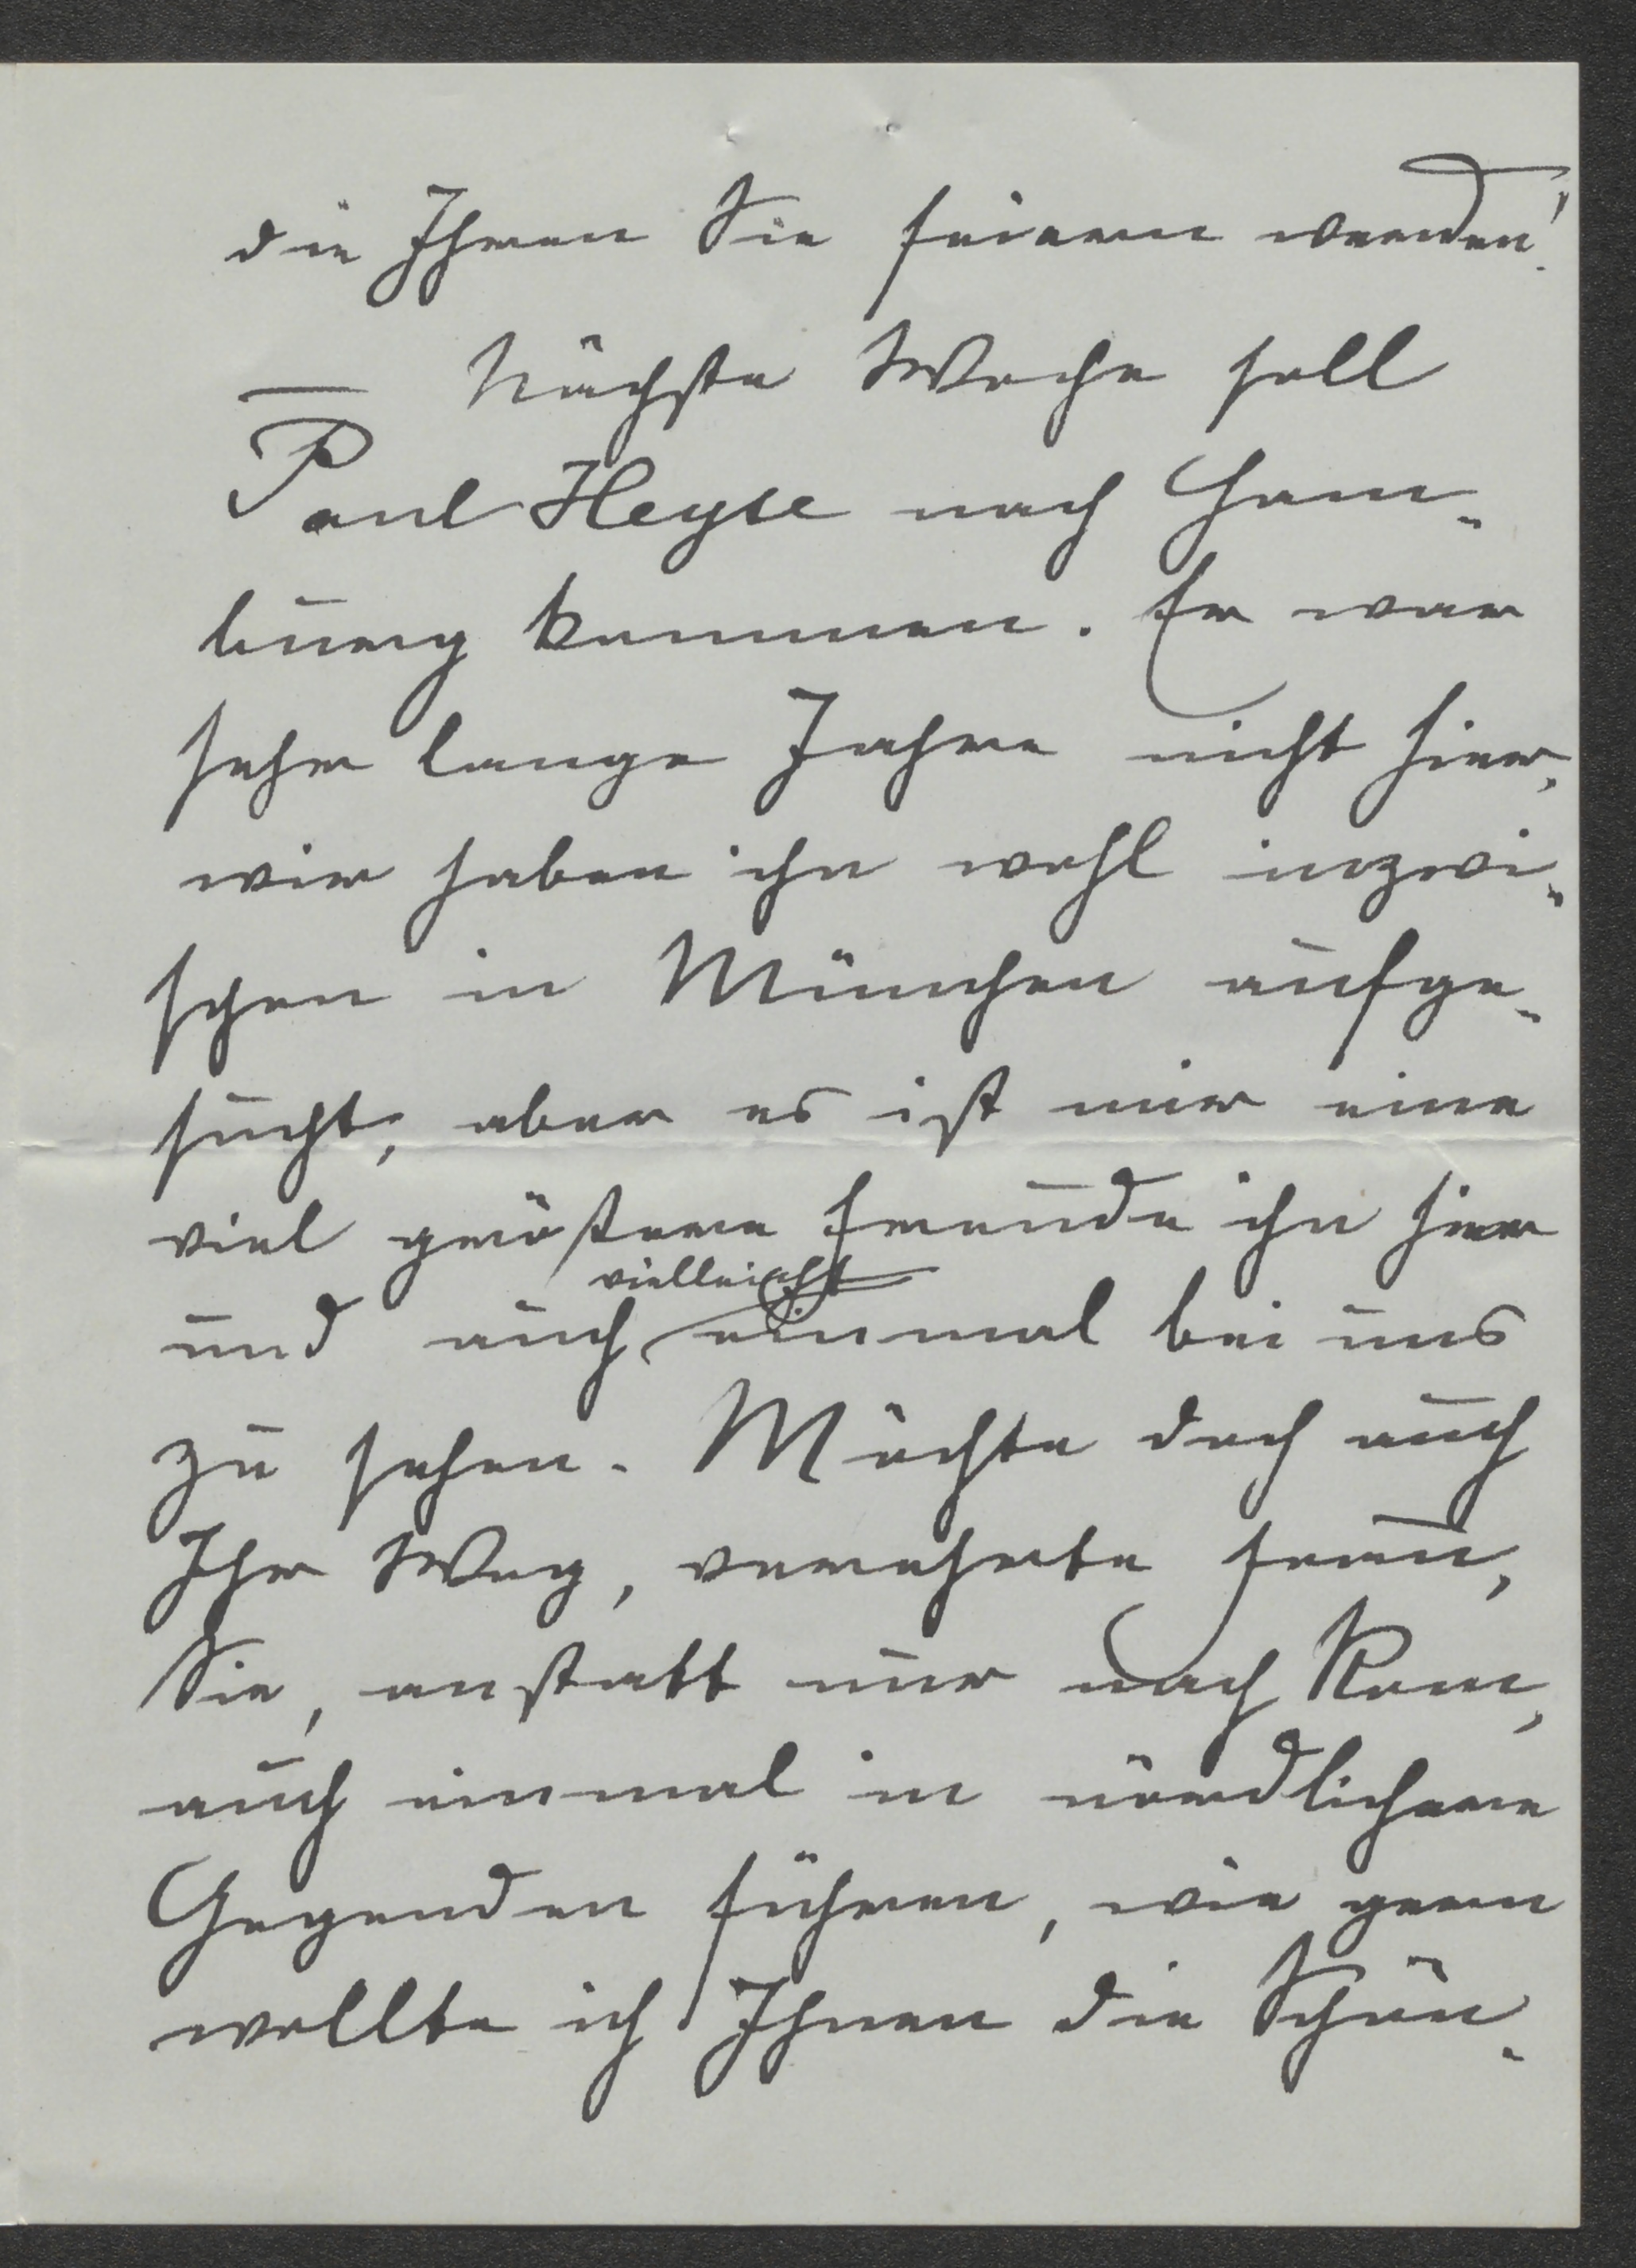 die Ihren Sie feiern werden!
— Nächste Woche soll
Paul Heyse nach Ham-
burg kommen. Er war
sehr lange Jahre nicht hier,
wir haben ihn wohl inzwi-
schen in München aufge-
sucht, aber es ist mir eine
viel größere Freude ihn hier
vielleicht
und auch einmal bei uns
zu sehen. Möchte doch auch
Ihr Weg, verehrte Frau,
Sie, anstatt nur nach Rom,
auch einmal in nördlichere
Gegenden führen, wie gern
wollte ich Ihnen die Schön-